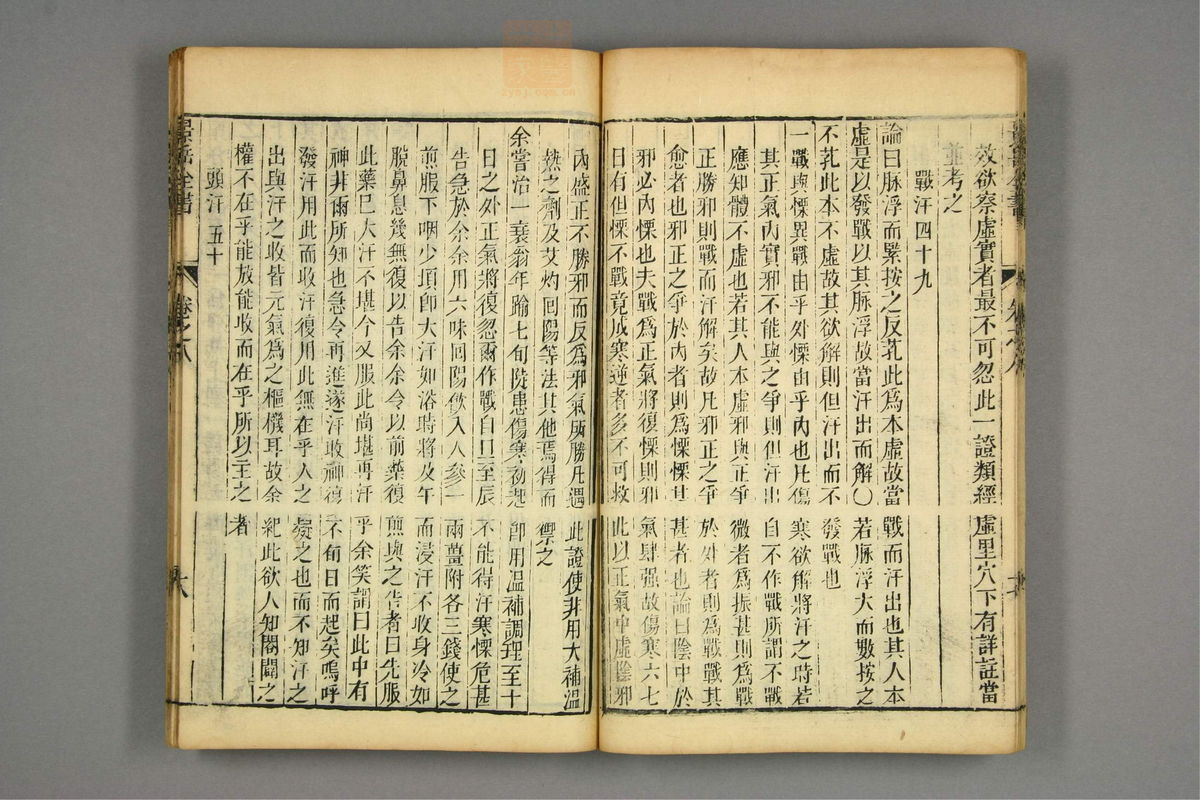 效欲察虛實者最不可忽此一證類經虛里穴下有詳註當
並考之
戰汗 四十九
論曰脉浮而緊按之反芤此爲本虛故當戰而汗出也其人本
虛是以發戰以其脉浮故當汗出而解〇若脉浮大而數按之
不芤此本不虛故其欲解則但汗出而不發戰也
一戰與慄異戰由乎外慄由乎內也凡傷寒欲解將汗之時若
其正氣內實邪不能與之爭則但汗出自不作戰所謂不戰
應知體不虛也若其人本虛邪與正爭微者爲振甚則爲戰
正勝邪則戰而汗解矣故凡邪正之爭於外者則爲戰戰其
愈者也邪正之爭於內者則爲慄慄其甚者也論曰陰中於
邪必內慄也夫戰爲正氣將復慄則邪氣肆强故傷寒六七
日有但慄不戰竟成寒逆者多不可救此以正氣中虛陰邪
內盛正不勝邪而反爲邪氣所勝凡遇此證使非用大補溫
熱之劑及艾灼回陽等法其他焉得而禦之
余嘗治一衰翁年踰七旬陡患傷寒初起卽用溫補調理至十
日之外正氣將復忽爾作戰自旦至辰不能得汗寒慄危甚
告急於余余用六味回陽飲入人參一兩薑附各三錢使之
煎服下咽少頃卽大汗如浴時將及午而浸汗不收身冷如
脫鼻息幾無復以告余余令以前藥復煎與之告者曰先服
此藥已大汗不堪今又服此尚堪再汗乎余笑謂曰此中有
神非爾所知也急令再進遂汗收神復不旬日而起矣嗚呼
發汗用此而收汗復用此無在乎人之疑之也而不知汗之
出與汗之收皆元氣爲之樞機耳故余紀此欲人知闔闢之
權不在乎能放能收而在乎所以主之者
頭汗 五十
景岳全書
卷之八
六